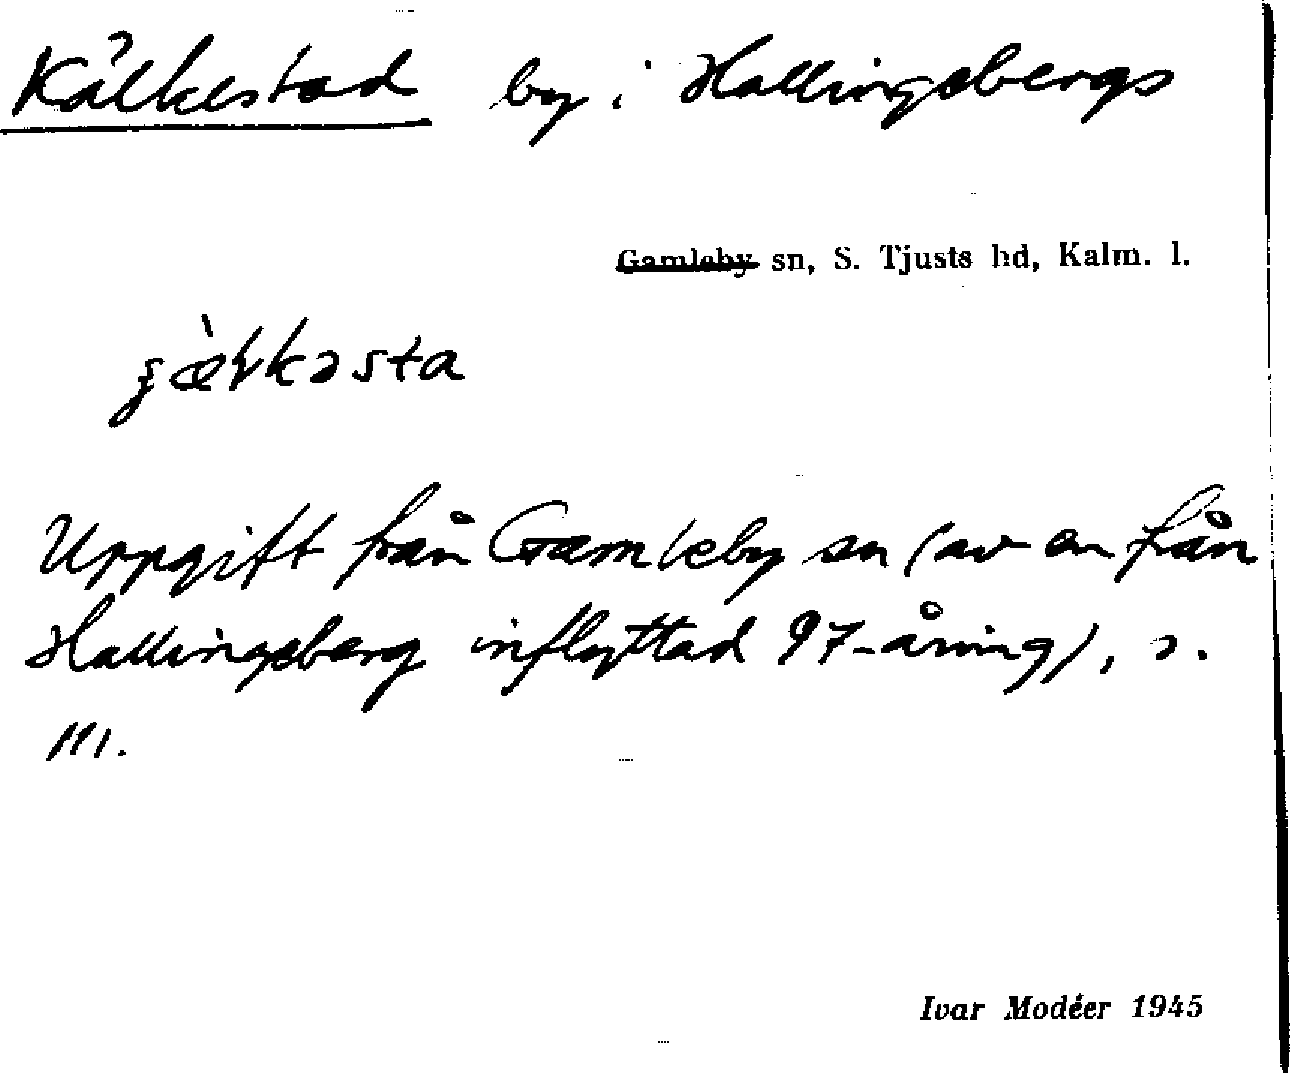 Kälkestad by i Hallingebergs
Gamleby sn, S. Tjusts hd, Kalm. l.
Uppgift från Gamleby sn (av en från
Hallingeberg inflyttad 97-åring), s.
111.
Ivar Modéer 1945